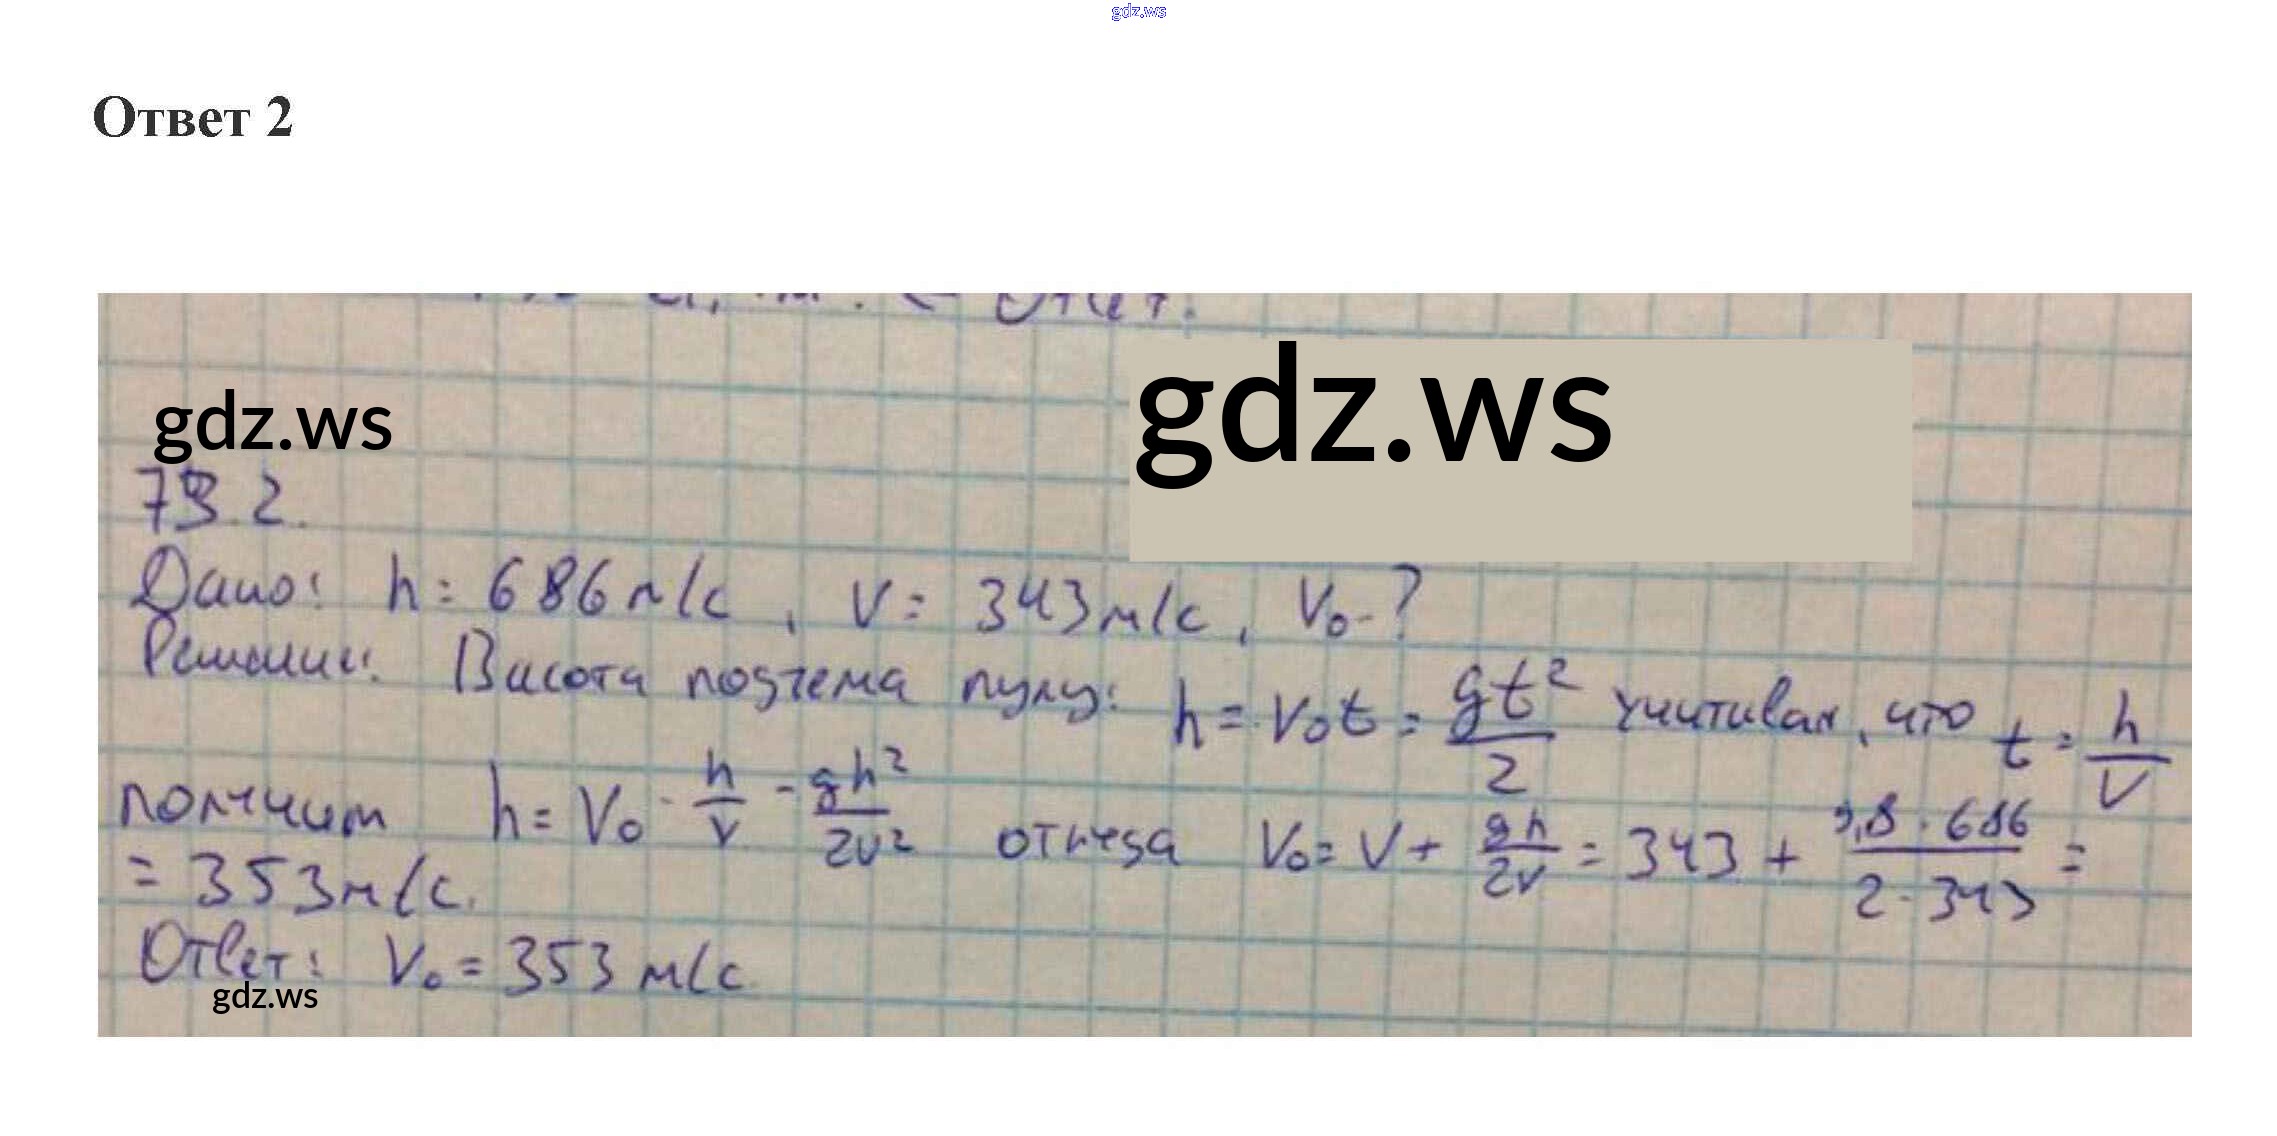 gdz.ws
Ответ 2
Ответ.
gdz.ws
gdz.ws
79.2.
Дано: h = 686 м/с, V = 343 м/с, V₀ - ?
Решение: Висота подъема пулу: h = V₀t = gt²/2 учитивая, что t = h/V
получим h = V₀ · h/V - gh²/2V² откуда V₀ = V + gh/2V = 343 + 9,8 · 686/2 · 343 =
= 353 м/с.
Ответ: V₀ = 353 м/с.
gdz.ws